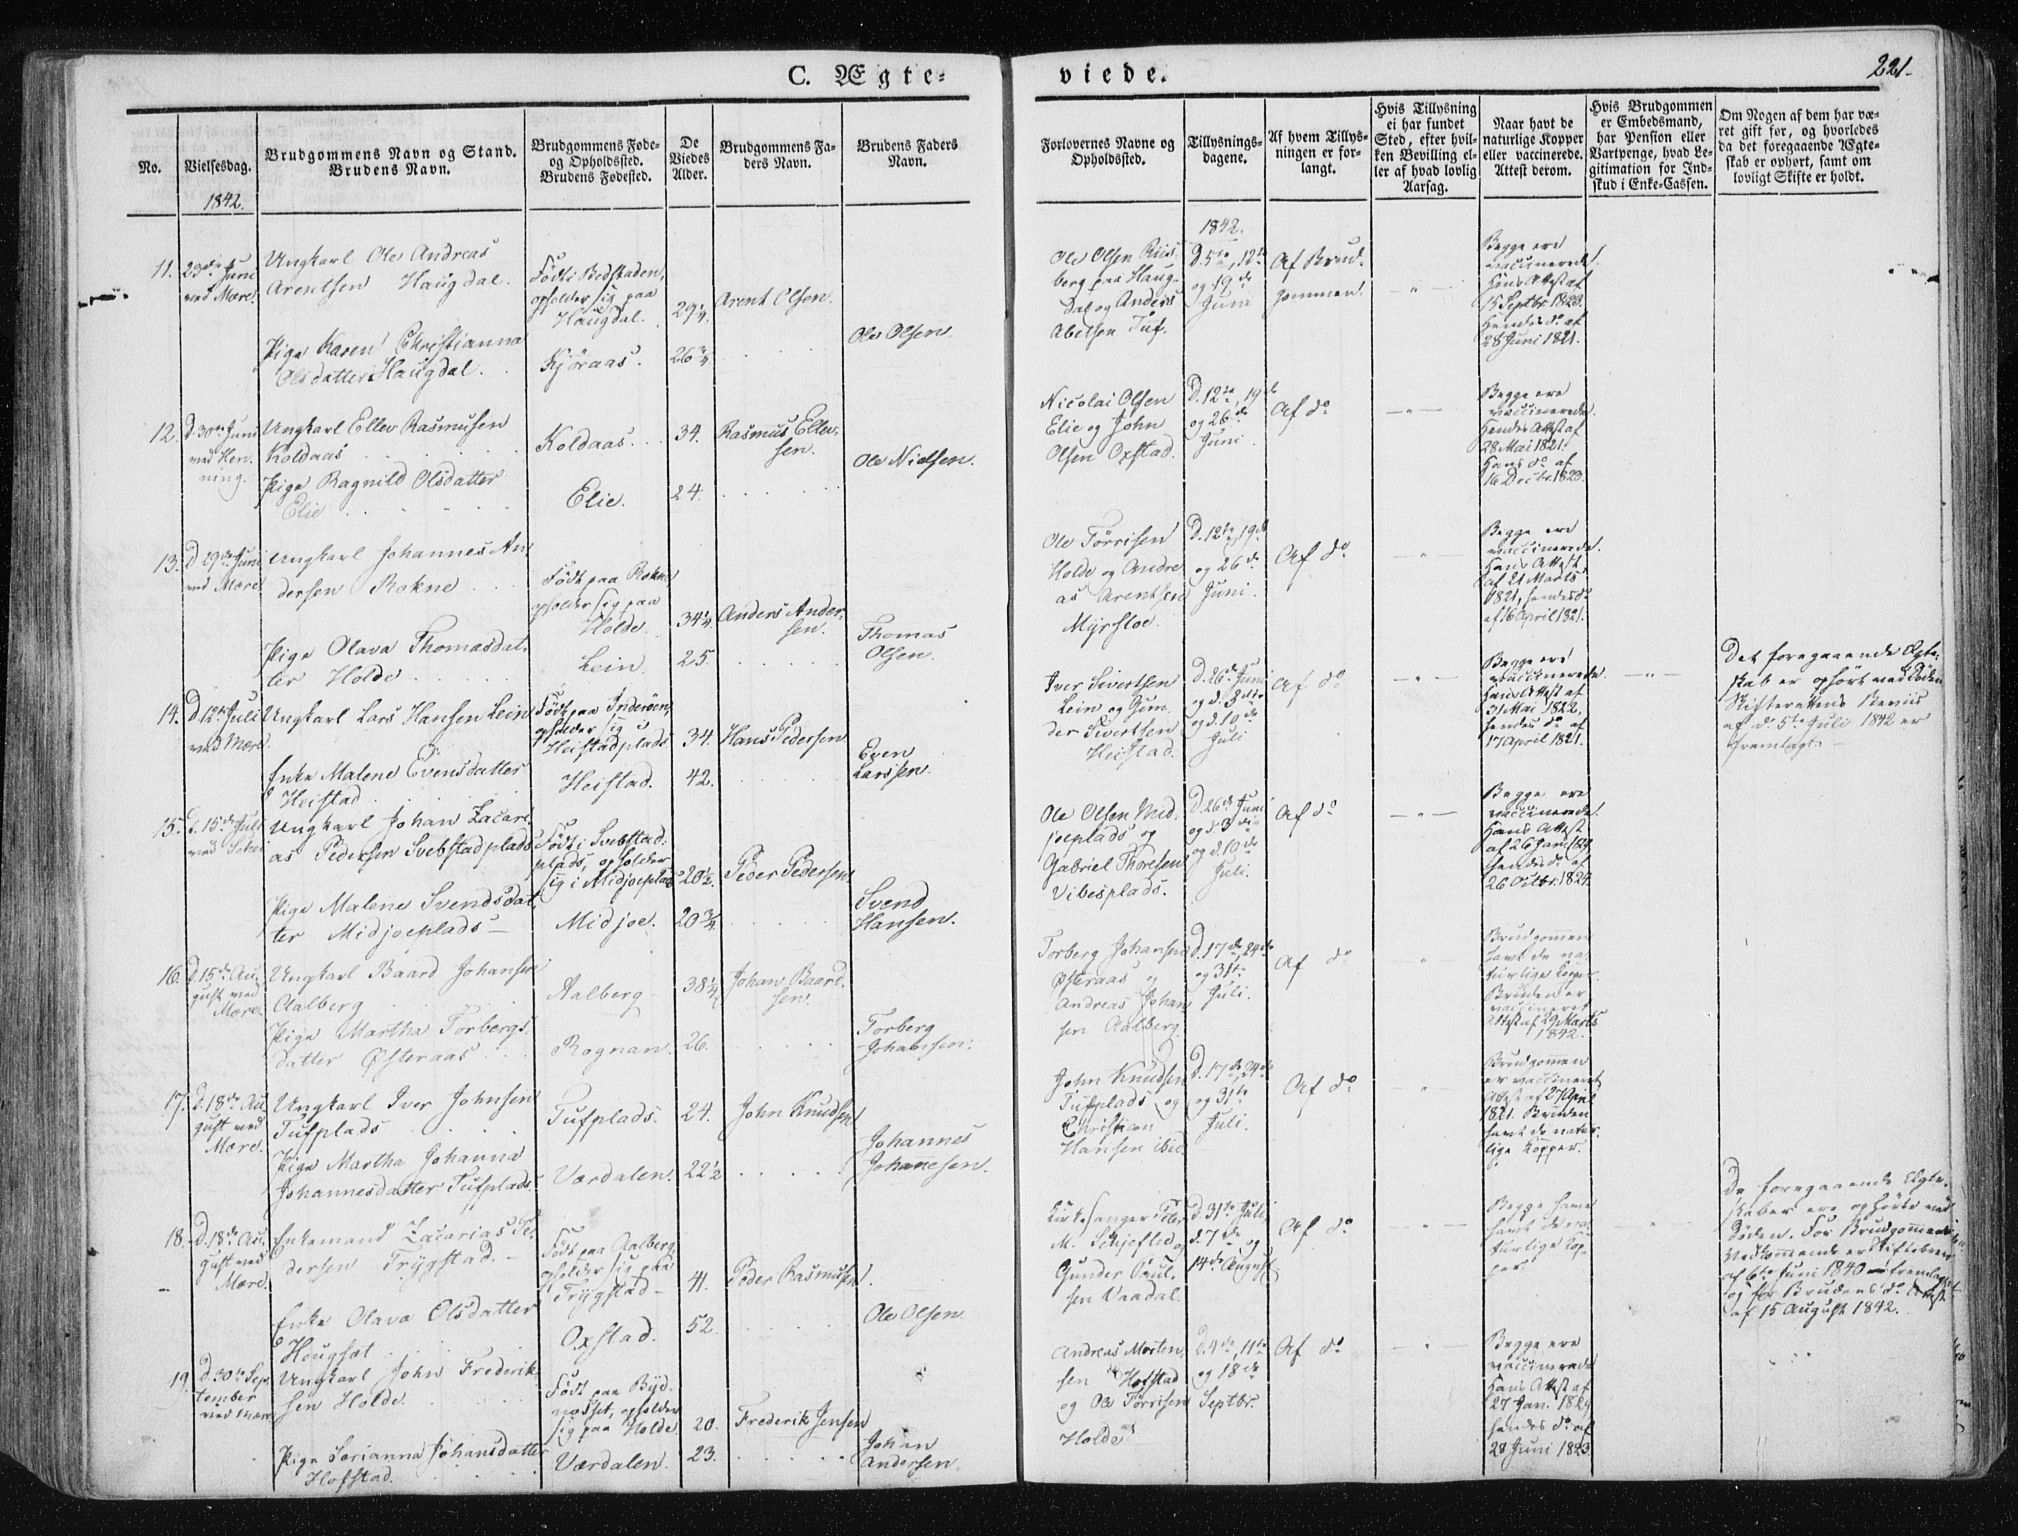 C. Ægte-
viede.
221.
No.
Vielsesdag.
Brudgommens Navn og Stand.
Brudens Navn.
Brudgommens Føde-
og Opholdssted.
Brudens Fødested.
De
Viedes
Alder.
Brudgommens Fa-
ders Navn.
Brudens Faders
Navn.
Forlovernes Navne og
Opholdssted.
Tillysnings-
dagene.
Af hvem Tillys-
ningen er for-
langt.
Hvis Tillysning
ei har fundet
Sted, efter hvil-
ken Bevilling el-
ler af hvad lovlig
Aarsag.
Naar havt de
naturlige Kopper
eller vaccinerede.
Attest derom.
Hvis Brudgommen
er Embedsmand,
har Pension eller
Vartpenge, hvad Le-
gitimation for Ind-
skud i Enke-Cassen.
Om Nogen af dem har væ-
ret gift før, og hvorledes
da det foregaaende Ægte-
skab er ophørt, samt om
lovligt Skifte er holdt.
1842.
1842.
11.
23de Juni
ved Mære.
Ungkarl Ole Andreas
Arentsen Haugdal.
Pige Karen Christianna
Olsdatter Haugdal.
Født i Bedstaden,
opholder sig paa
Haugdal.
Kjøraas.
29 1/4
26 3/4
Arent Olsen
Ole Olsen
Ole Olsen Riis-
berg paa Haug-
dal og Anders
Abelsen Tuf.
D. 5te, 12te
og 19de
Juni
Af Brud-
gommen
Begge ere
vaccinerede.
Hans Attest af
15 Septbr. 1823.
Hendes do af
28 Juni 1821.
12.
D. 30te Juni
ved Hen-
ning.
Ungkarl Ellev Rasmusen
Koldaas
Pige Ragnild Olsdatter
Elie
Koldaas.
Elie.
34.
24.
Rasmus Ellev-
sen.
Ole Nielsen.
Nicolai Olsen
Elie og John
Olsen Oxstad.
D. 12te, 19de
og 26de
Juni.
Af do
Begge ere
vaccinerede.
Hendes Attest af
28 Mai 1821.
Hans do af
16 Decbr. 1823.
13.
D. 29de Juni
ved Mære
Ungkarl Johannes An-
dersen Rokne
Pige Olava Thomasdat-
ter Holde
Født paa Rokne
opholder sig paa
Holde
Lein
34 1/4
25.
Anders Ander-
sen.
Thomas
Olsen.
Ole Tørrisen
Holde og Andre-
as Arentsen
Myrsloe.
D. 12te, 19de
og 26de
Juni.
Af do
Begge ere
vaccinerede.
Hans Attest
af 21 Marts
1821, hendes do
af 16 April 1821.
14.
D. 12te Juli
ved Mære.
Ungkarl Lars Hansen Lein
Enke Malene Evensdatter
Heistad
Født paa Inderøen,
opholder sig i
Heistadplads
Heistad.
34.
42.
Hans Pedersen
Even
Larssen.
Iver Sivertsen
Lein og Gun-
der Sivertsen
Heistad.
D. 26de Juni
og d. 3die
og d. 10de
Juli
Af do
Begge ere
vaccinerede.
Hans Attest af
31 Mai 1822,
hendes do af
17 April 1821.
Det foregaaende Ægte-
skab er ophørt ved Døden
Skifterettens Beviis
af d. 5te Juli 1842 er
fremlagt
15.
D. 15de Juli
ved
Ungkarl Johan Zacari-
as Pedersen Svebstadplads
Pige Malene Svendsdat-
ter Midjoeplads
Født i Svebstad-
plads, opholder
sig i Midjoeplads
Midjoe.
20 1/2
20 3/4
Peder Pedersen
Svend
Hansen.
Ole Olsen Mid-
joeplads og
Gabriel Thoresen
Vibesplads.
D. 26de Juni
og d. 3die
og d. 10de
Juli.
Af do
Begge ere
vaccinerede.
Hans Attest
hendes do af
26 Octbr. 1824.
16.
D. 15de Au-
gust ved
Mære.
Ungkarl Baard Johansen
Aalberg
Pige Martha Torbergs-
datter Østeraas
Aalberg
Rognan.
38 1/4
26.
Johan Baard-
sen.
Torberg
Johansen.
Torberg Johansen
Østeraas og
Andreas Johan-
sen Aalberg
D. 17de, 24de
og 31te
Juli.
Af do
Brudgommen
havt de na-
turlige Kopper.
Bruden er
vaccineret
Attest af 29 Marts
1842.
17.
D. 18de Au-
gust ved
Mære.
Ungkarl Iver Johnsen
Tufplads
Pige Martha Johanna
Johannesdatter Tufplads.
Tufplads.
Værdalen.
24.
22 1/2
John Knudsen
Johannes
Johannesen.
John Knudsen
Tufplads og
Christian
Hansen ibid.
D. 17de, 24de
og 31te
Juli.
Af do
Brudgommen
er vaccineret
Attest af 27 April
1821. Bruden
havt de natur-
lige Kopper.
18.
D. 18de Au-
gust ved
Mære.
Enkemand Zacarias Pe-
dersen Trygstad.
Enke Olava Olsdatter
Hougsæt
Født paa Aalberg,
opholder sig paa
Trygstad
Oxstad.
41.
52.
Peder Rasmusen
Ole Olsen
Kirkesanger Peter
M. Schjeflo og
Gunder Paul-
sen Vaadal.
D. 31te Juli,
d. 7de og
14de August.
Af do
Begge have
havt de na-
turlige Kop-
per.
De foregaaende Ægte-
skaber ere ophørte ved
Døden. For Brudgommens
Vedkommende er Skiftebrev
af 6te Juni 1840 fremlagt
og for Brudens do Attest
af 15 August 1842.
19.
D. 30te Sep-
tember
ved Mære
Ungkarl John Frederik-
sen Holde.
Pige Serianna Johansdatter
Hofstad.
Født paa
opholder
sig paa Holde.
Værdalen.
20.
23.
Frederik Jensen
Johan
Andersen.
Andreas Morten-
sen Hofstad
og Ole Tørrisen
Holde
D. 4de, 11te
og 18de
Septbr.
Af do
Begge ere
vaccinerede
Hans Attest af
27 Jan. 1824
hendes do af
28 Juni 1823